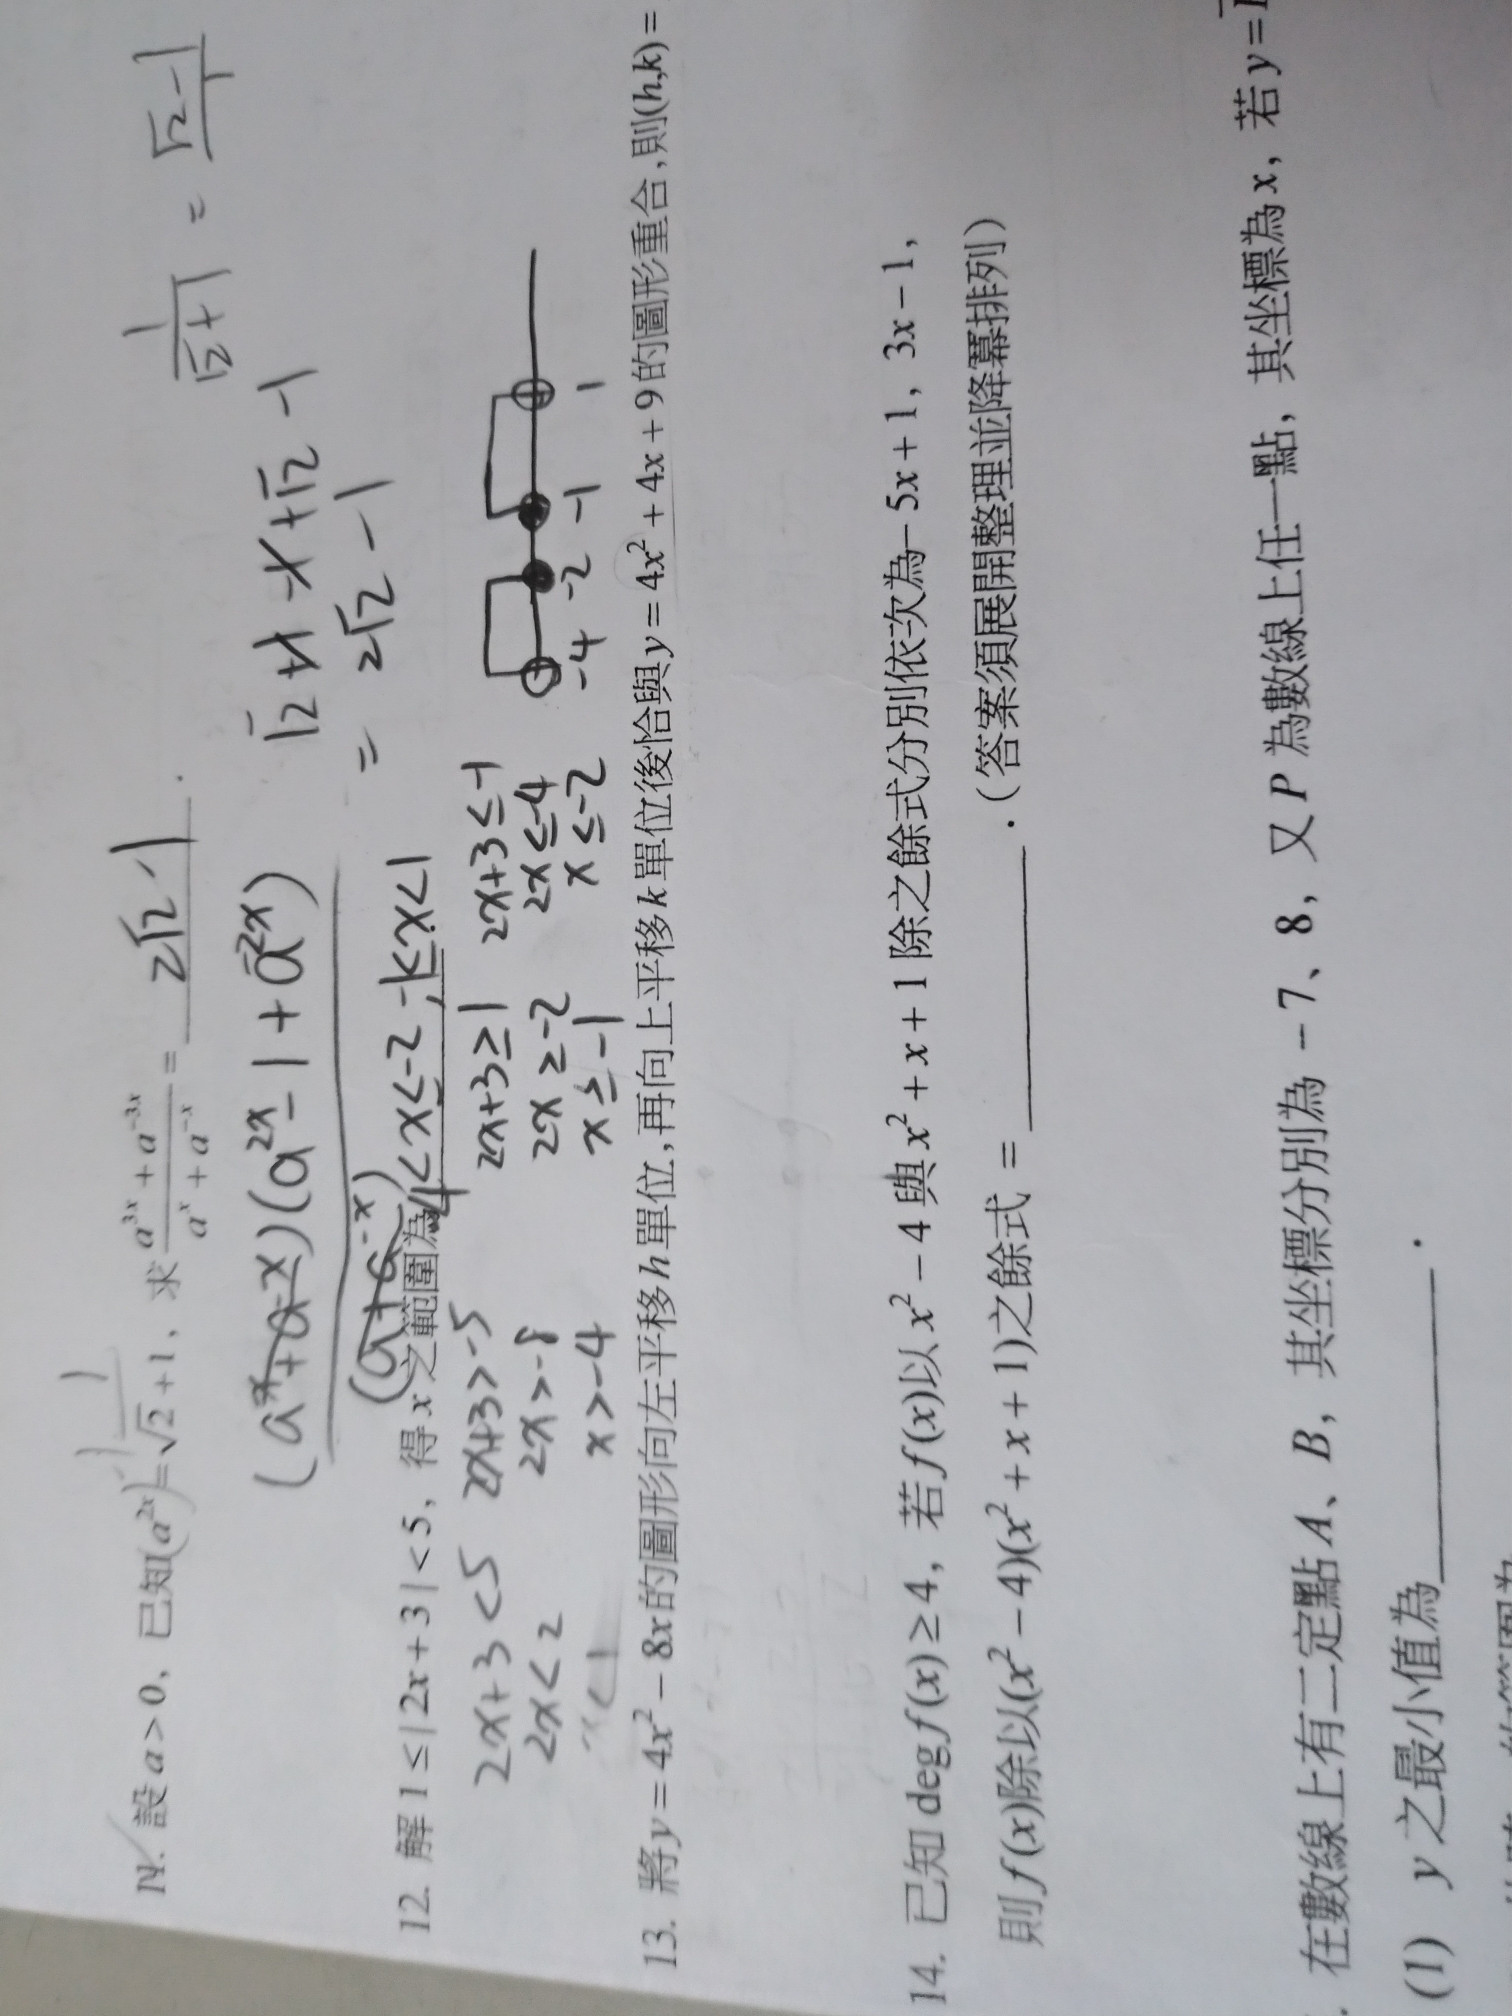 11. 設 a > 0, 已知(a^{2x})=√2+1, 求 \frac{a^{3x}+a^{-3x}}{a^x+a^{-x}} = 2√2-1.
\frac{1}{√2+1} = \frac{√2-1}{1}
\frac{(a^x+a^{-x})(a^{2x}-1+a^{-2x})}{(a^x+a^{-x})}
√2+1-1+√2-1
= 2√2-1
12. 解 1≤|2x+3|<5, 得 x 之範圍為 -4<x≤-2, -1≤x<1
2x+3<5 2x+3>-5 2x+3≥1 2x+3≤-1
2x<2 2x>-8 2x≥-2 2x≤-4
x<1 x>-4 x≥-1 x≤-2
-4 -2 -1 1
13. 將y=4x²-8x的圖形向左平移h單位,再向上平移k單位後恰與y=4x²+4x+9的圖形重合,則(h,k)=
14. 已知 deg f(x)≥4, 若f(x)以x²-4與x²+x+1除之餘式分別依次為-5x+1, 3x-1,
則f(x)除以(x²-4)(x²+x+1)之餘式 = ______.(答案須展開整理並降冪排列)
在數線上有二定點A、B, 其坐標分別為 -7、8, 又P為數線上任一點, 其坐標為x, 若y=
(1) y之最小值為______.